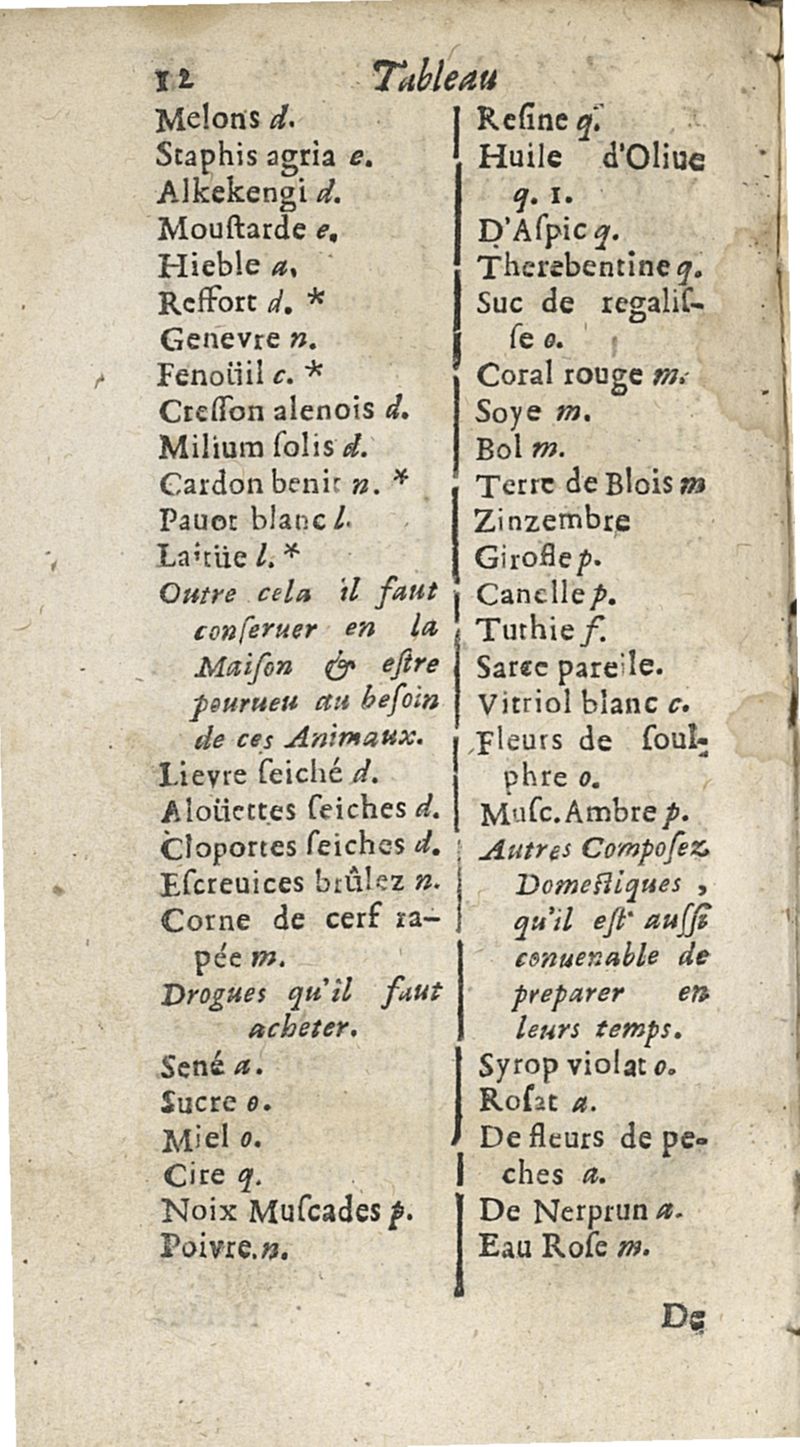 12 Tableau
Melons d.
Staphis agria e.
Alkekengi d.
Mouſtarde e.
Hieble a.
Reffort d. *
Genevre n.
Fenoüil c. *
Creſſon alenois d.
Milium ſolis d.
Cardon benit n. *
Pauot blanc l.
Laitüe l. *
Outre cela il faut
conſeruer en la
Maiſon & eſtre
pourueu au beſoin
de ces Animaux.
Lievre ſeiché d.
Aloüettes ſeiches d.
Cloportes ſeiches d.
Eſcreuices brûlez n.
Corne de cerf ra-
pée m.
Drogues qu'il faut
acheter.
Sené a.
Sucre o.
Miel o.
Cire q.
Noix Muſcades p.
Poivre. n.
Reſine q.
Huile d'Oliue
q. 1.
D'Aſpic q.
Therebentine q.
Suc de regaliſ-
ſe o.
Coral rouge m.
Soye m.
Bol m.
Terre de Blois m
Zinzembre
Girofle p.
Canelle p.
Tuthie f.
Sarce pareile.
Vitriol blanc c.
Fleurs de ſoul-
phre o.
Muſc. Ambre p.
Autres Compoſez
Domeſtiques,
qu'il eſt auſſi
conuenable de
preparer en
leurs temps.
Syrop violat o.
Roſat a.
De fleurs de pe-
ches a.
De Nerprun a.
Eau Roſe m.
De